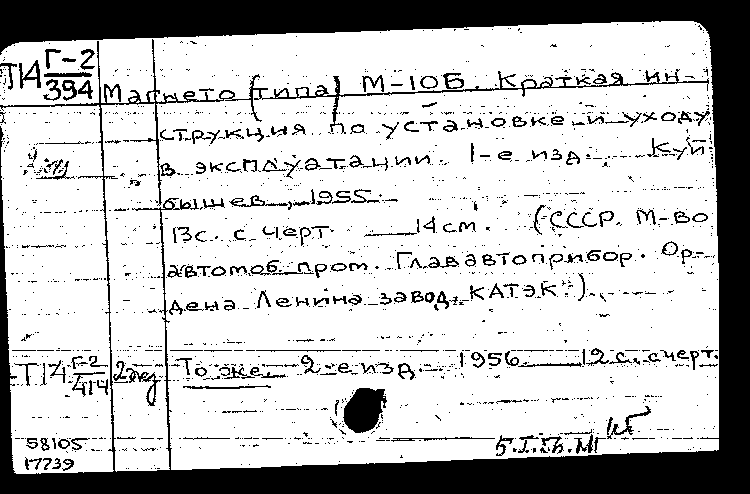 Т14 Г-2
394
Магнето (типа) М-10Б. Краткая ин-
струкция по установке и уходу
2 экз
в эксплуатации. 1-е изд. Куй
бышев, 1955.
13с. с черт. 14см. (СССР. М-во
автомоб. пром. Глававтоприбор. Ор-
дена Ленина завод "КАТЭК").
Т14 Г-2
414
2 экз
То же. 2-е изд. 1956 12с. с черт.
58105
17739